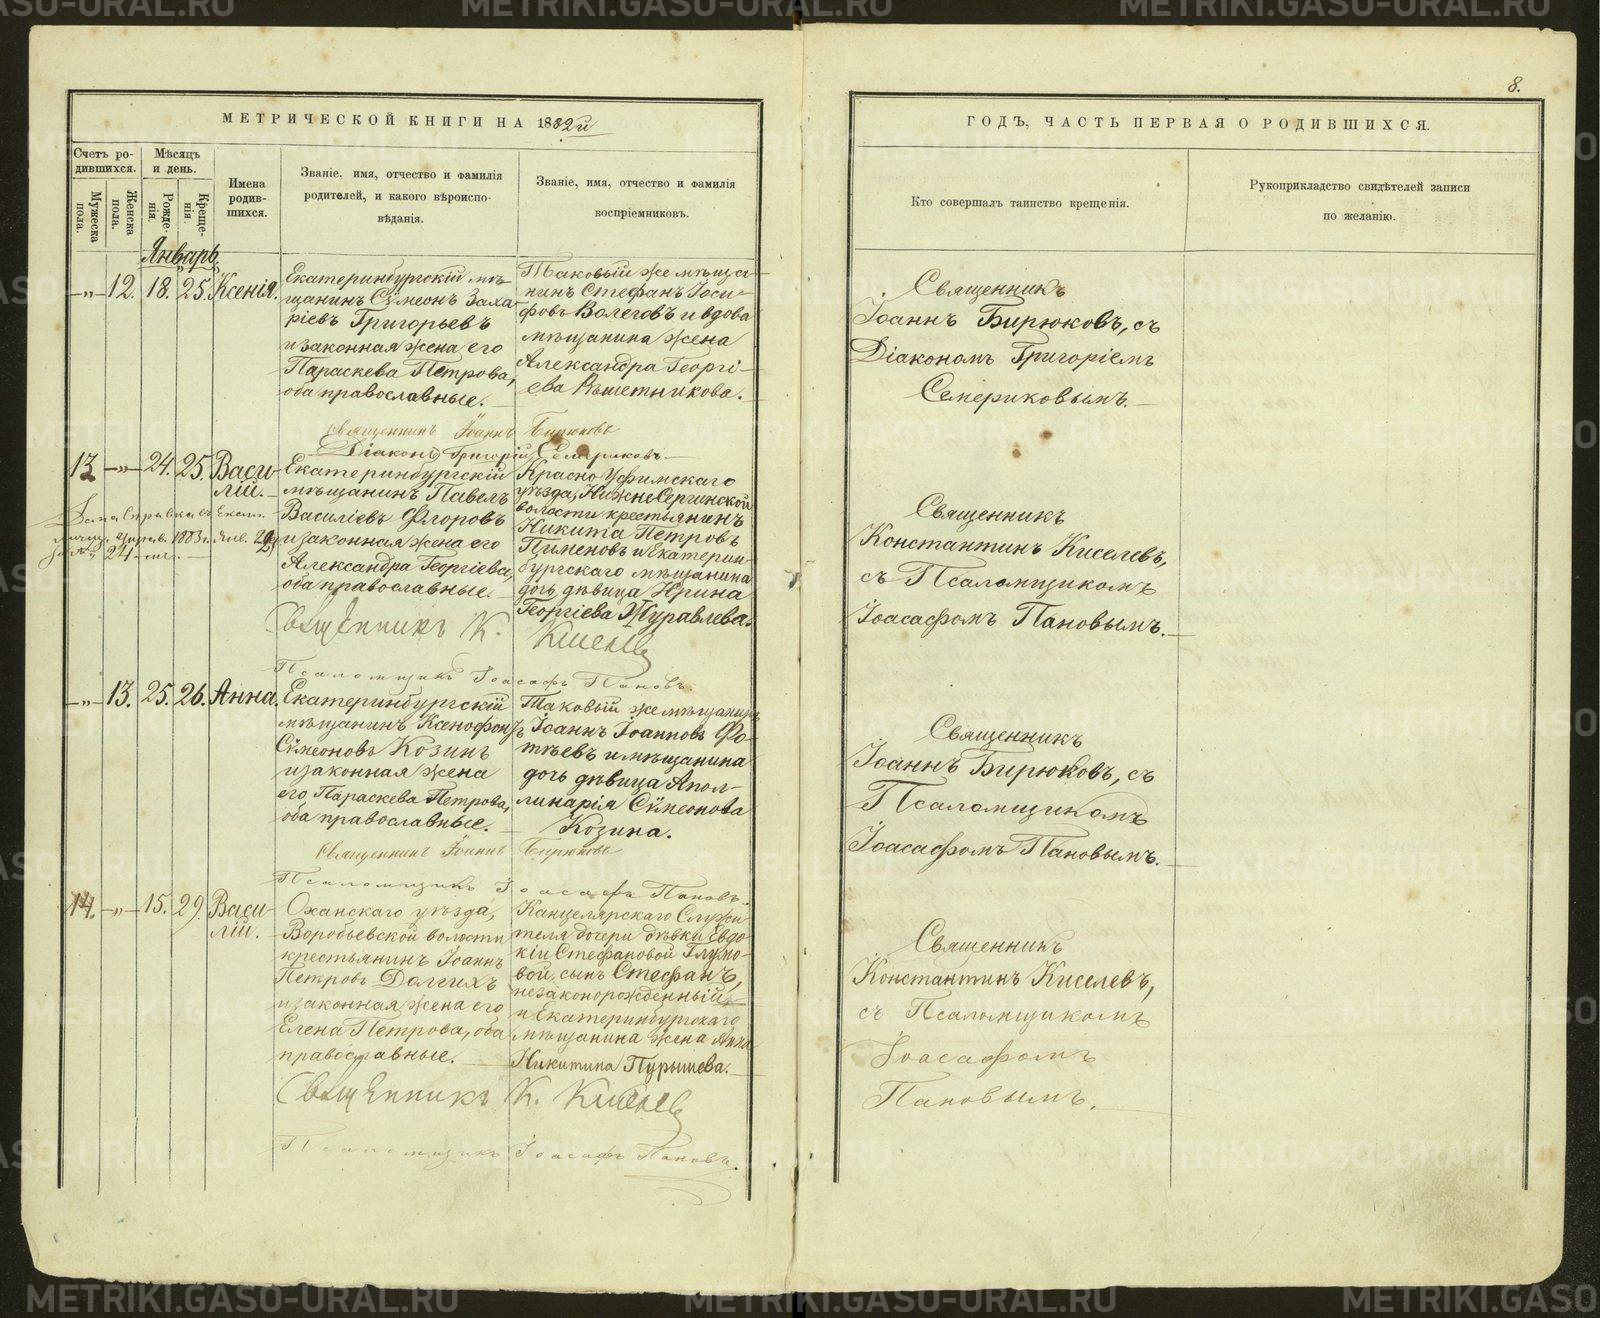 8.
МЕТРИЧЕСКОЙ КНИГИ НА 1882й
ГОДЪ, ЧАСТЬ ПЕРВАЯ О РОДИВШИХСЯ.
Счетъ ро-
дившихся.
Мужеска
пола.
Женска
пола.
Мѣсяцъ
и день.
Рожде-
нія.
Креще-
нія.
Имена
родив-
шихся.
Званіе, имя, отчество и фамилія
родителей, и какого вѣроиспо-
вѣданія.
Званіе, имя, отчество и фамилія
воспріемниковъ.
Кто совершалъ таинство крещенія.
Рукоприкладство свидѣтелей записи
по желанію.
Январь.
—„— 12. 18. 25. Ксенія.
Екатеринбургскій мѣ-
щанинъ Сѵмеонъ Заха-
ріевъ Григорьевъ
и законная жена его
Параскева Петрова,
оба православные.
Таковый же мѣща-
нинъ Стефанъ Іоси-
фовъ Волеговъ и вдова
мѣщанина жена
Александра Георгі-
ева Рѣшетникова.
Священникъ
Іоаннъ Бирюковъ, съ
Діакономъ Григоріемъ
Семериковымъ.
Священникъ Іоаннъ Бирюковъ
Діаконъ Григорій Семериковъ
13 —„— 24. 25. Васи-
лій.
Екатеринбургскій
мѣщанинъ Павелъ
Василіевъ Флоровъ
и законная жена его
Александра Георгіева,
оба православные.
Красноуфимскаго
уѣзда, НижнеСергинской
волости крестьянинъ
Никита Петровъ
Пименовъ и Екатерин-
бургскаго мѣщанина
дочь дѣвица Ирина
Георгіева Журавлева.
Священникъ
Константинъ Киселевъ,
съ Псаломщикомъ
Іоасафомъ Пановымъ.
Дана справка въ Екат.
управ. 1883 г. Янв. 29
за № 24
Священникъ К. Киселевъ
Псаломщикъ Іоасафъ Пановъ.
—„— 13. 25. 26. Анна.
Екатеринбургскій
мѣщанинъ Ксенофонтъ
Сѵмеоновъ Козинъ
и законная жена
его Параскева Петрова,
оба православные.
Таковый же мѣщанинъ
Іоаннъ Іоанновъ Фо-
тѣевъ и мѣщанина
дочь дѣвица Апол-
линарія Сѵмеонова
Козина.
Священникъ
Іоаннъ Бирюковъ, съ
Псаломщикомъ
Іоасафомъ Пановымъ.
Священникъ Іоаннъ Бирюковъ
Псаломщикъ Іоасафъ Пановъ.
14. —„— 15. 29. Васи-
лій.
Оханскаго уѣзда,
Воробьевской волости
крестьянинъ Іоаннъ
Петровъ Долгихъ
и законная жена его
Елена Петрова, оба
православные.
Канцелярскаго Служи-
теля дочери дѣвки Евдо-
кіи Стефановой Глумо-
вой, сынъ Стефанъ,
незаконорожденный,
и Екатеринбургскаго
мѣщанина жена Анна
Никитина Пурышева.
Священникъ
Константинъ Киселевъ,
съ Псаломщикомъ
Іоасафомъ
Пановымъ.
Священникъ К. Киселевъ
Псаломщикъ Іоасафъ Пановъ.
METRIKI.GASO-URAL.RU